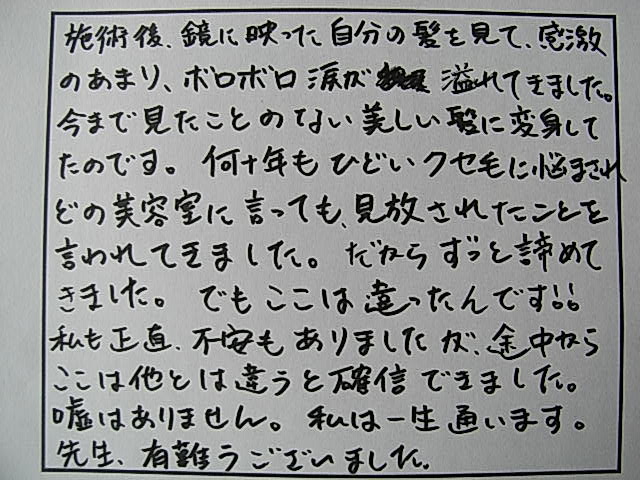 施術後、鏡に映った自分の髪を見て、感激
のあまり、ボロボロ涙が溢れてきました。
今まで見たことのない美しい髪に変身して
たのです。何十年もひどいクセ毛に悩まされ
どの美容室に言っても、見放されたことを
言われてきました。だからずっと諦めて
きました。でもここは違ったんです!!
私も正直、不安もありましたが、途中から
ここは他とは違うと確信できました。
嘘はありません。私は一生通います。
先生、有難うございました。